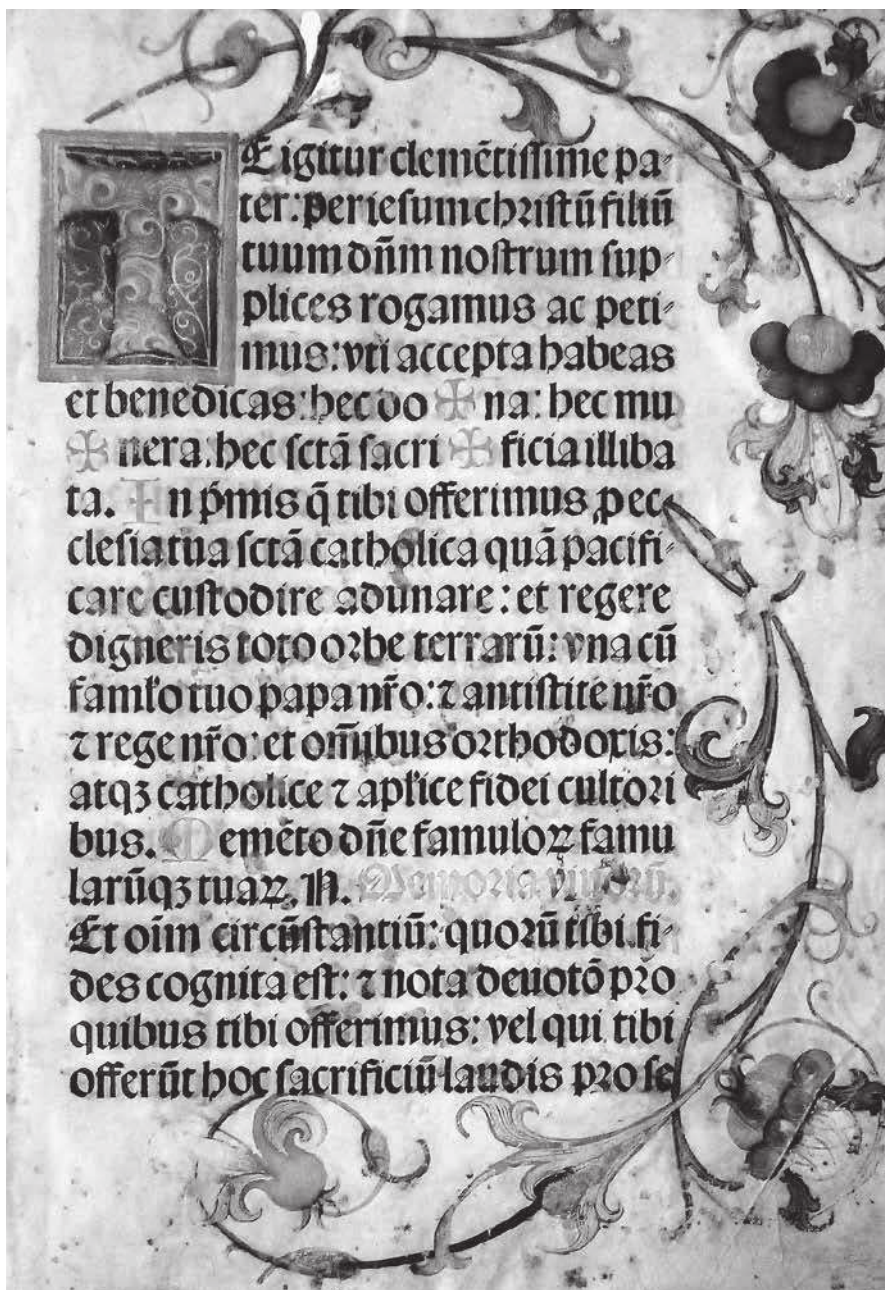 TE igitur clemētissime pa⸗
ter: per iesum christū filiū
tuum dn̄m nostrum sup⸗
plices rogamus ac peti⸗
mus: vti accepta habeas
et benedicas: hec do ✠ na: hec mu
✠ nera: hec sctā sacri ✠ ficia illiba
ta. In pͥmis q̄ tibi offerimus ꝓ ec⸗
clesia tua sctā catholica quā pacifi⸗
care custodire adunare: et regere
digneris toto orbe terrarū: vna cū
famƚo tuo papa nr̄o: ⁊ antistite nr̄o
⁊ rege nr̄o: et om̄ibus orthodoxis:
atqꝫ catholice ⁊ apƚice fidei cultori
bus. Memēto dn̄e famuloꝝ famu
larūqꝫ tuaꝝ. N. Memoria viuorū.
Et oīm circūstantiū: quorū tibi fi⸗
des cognita est: ⁊ nota deuotō pro
quibus tibi offerimus: vel qui tibi
offerūt hoc sacrificiū laudis pro se